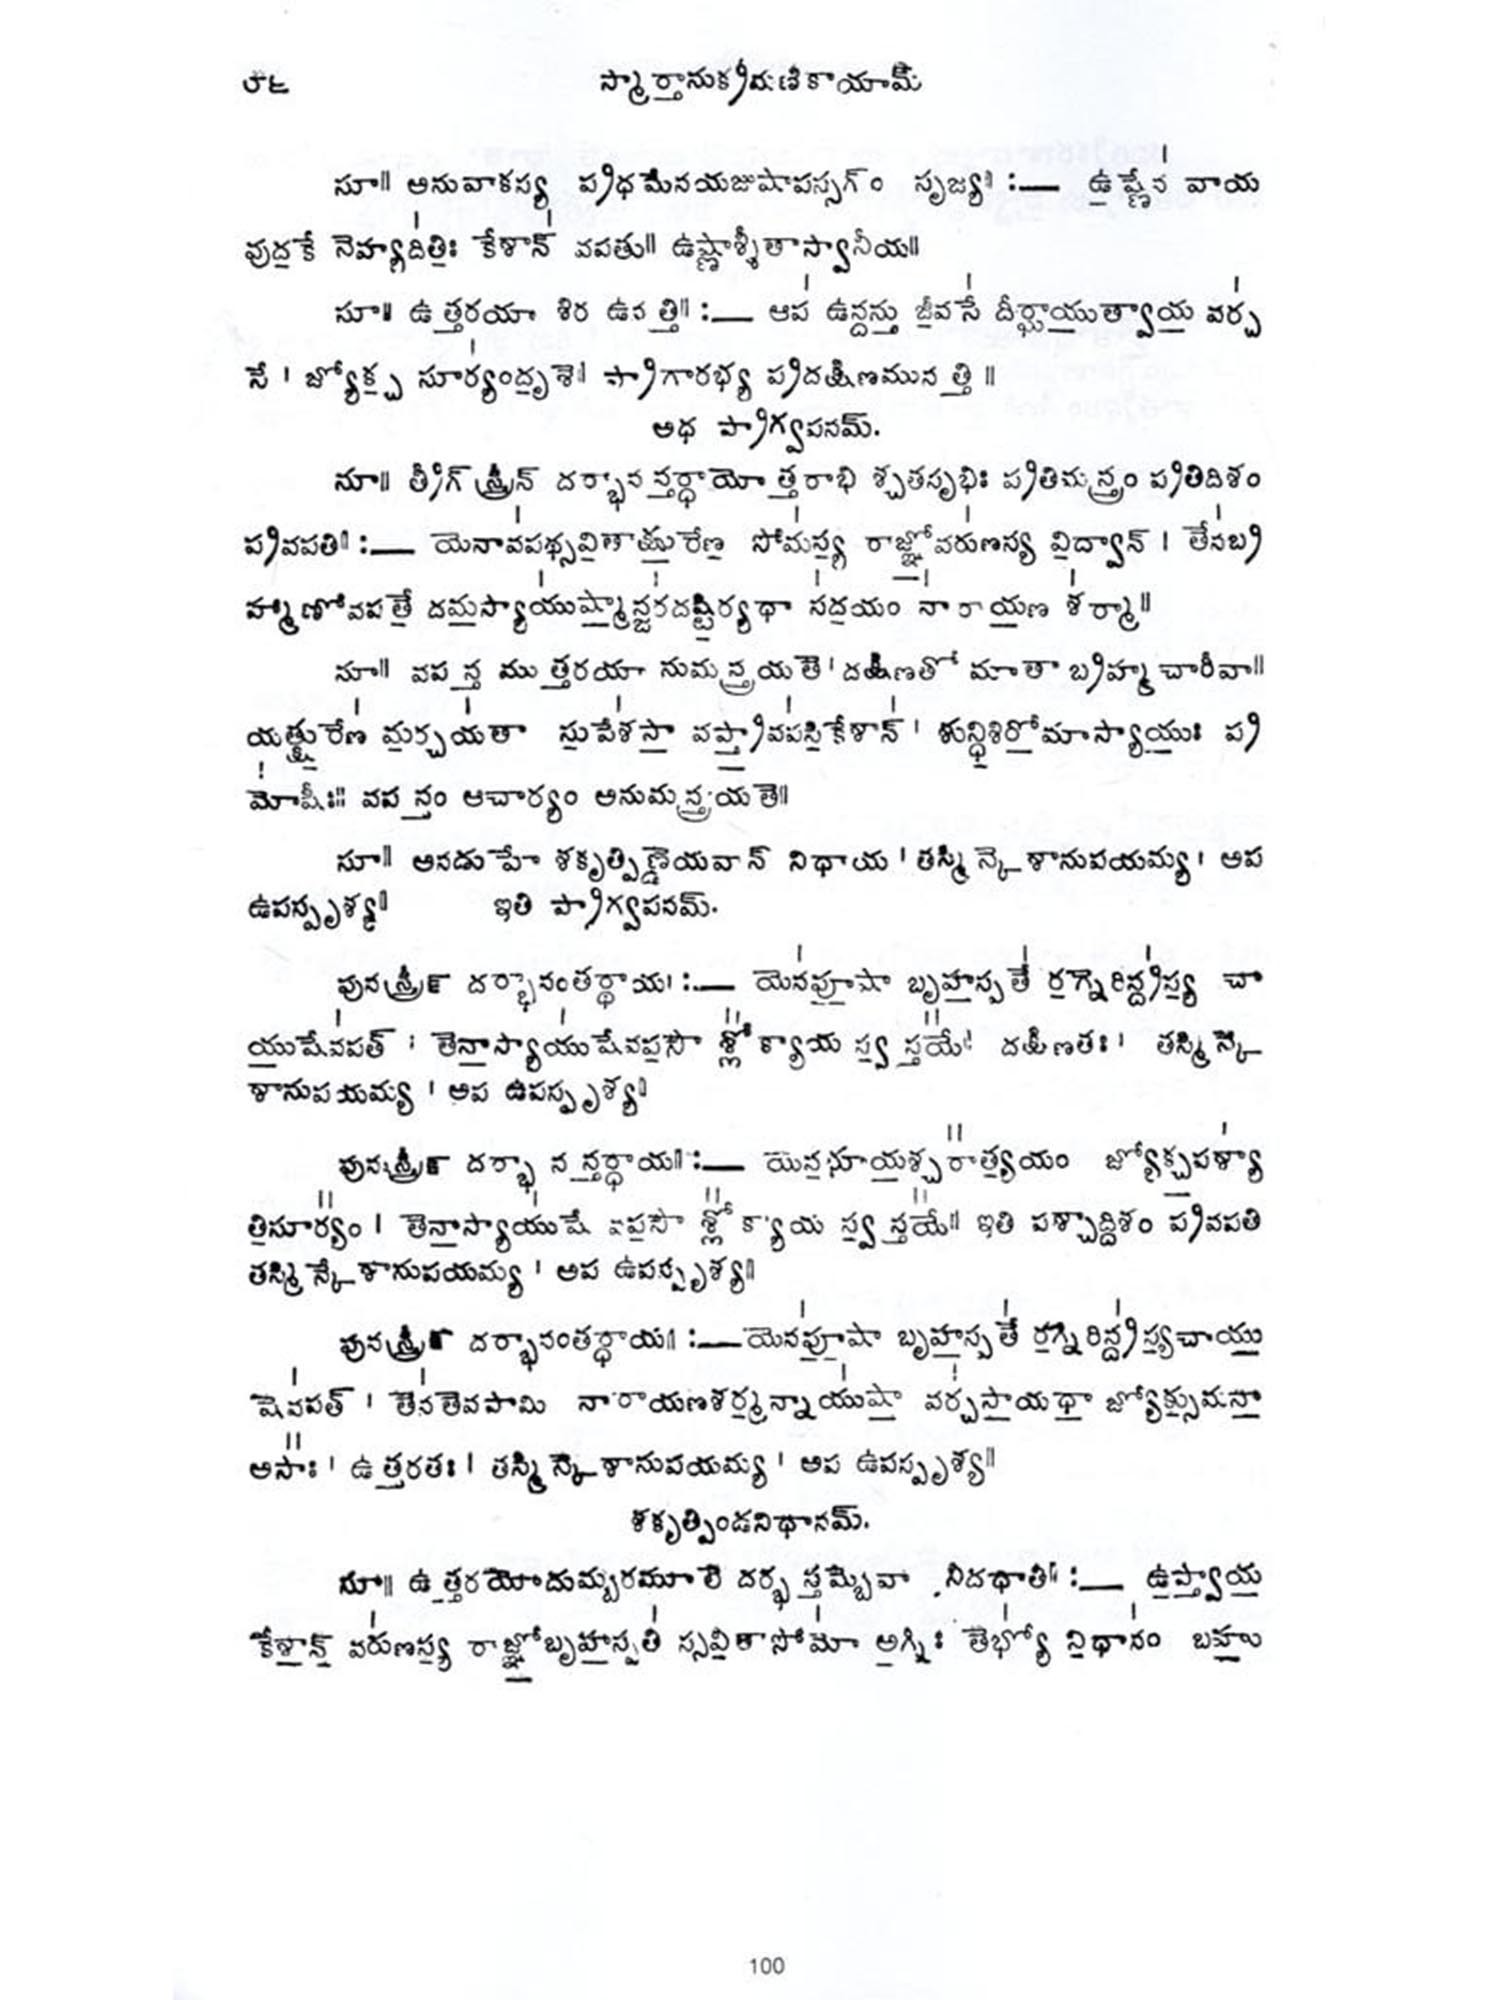 ౮౬ స్మార్తానుక్రమణికాయామ్
సూ॥ అనువాకస్య ప్రధమేనయజుషాపస్సగ్ం సృజ్య॥ :— ఉష్ణేన వాయ
వుదకే నెహ్యదితిః కేశాన్ వపతు॥ ఉష్ణాశ్శీతాస్వానీయ॥
సూ॥ ఉత్తరయా శిర ఉనత్తి॥ :— ఆప ఉన్దన్తు జీవసే దీర్ఘాయుత్వాయ వర్చ
సే । జ్యోక్చ సూర్యందృశె॥ ప్రాగారభ్య ప్రదక్షిణమునత్తి ॥
అధ ప్రాగ్వపనమ్.
సూ॥ త్రీగ్ స్త్రీన్ దర్భానన్తర్ధాయోత్తరాభి శ్చతసృభిః ప్రతిమన్త్రం ప్రతిదిశం
ప్రవపతి॥ :— యెనావపథ్సవితాక్షురేణ సోమస్య రాజ్ఞోవరుణస్య విద్వాన్ । తేనబ్ర
హ్మాణోవపతే దమస్యాయుష్మాన్జరదష్టిర్యథా సదయం నారాయణ శర్మా॥
సూ॥ వపన్త ముత్తరయా నుమన్త్రయతె । దక్షిణతో మాతా బ్రహ్మచారీవా॥
యత్క్షురేణ మర్చయతా సుపేశసా వప్త్రావపసికేశాన్ । శున్ధిశిరోమాస్యాయుః ప్ర
మోషీః॥ వపన్తం ఆచార్యం అనుమన్త్రయతె॥
సూ॥ అనడుహే శకృత్పిణ్డెయవాన్ నిధాయ । తస్మిన్కెశానుపయమ్య । అప
ఉపస్పృశ్య॥ ఇతి ప్రాగ్వపనమ్.
పునస్త్రీ౯ దర్భానంతర్ధాయ । :— యెనపూషా బృహస్పతే రగ్నెరిన్ద్రస్య చా
యుషేవపత్ । తెనాస్యాయుషేవపసౌ శ్లోక్యాయ స్వస్తయే । దక్షిణతః । తస్మిన్కె
శానుపయమ్య । అప ఉపస్పృశ్య॥
పునస్త్రీ౯ దర్భానన్తర్ధాయ॥ :— యెనభూయశ్చరాత్ర్యయం జ్యోక్చపశ్యా
తిసూర్యం । తెనాస్యాయుషే వపసౌ శ్లోక్యాయ స్వస్తయే॥ ఇతి పశ్చాద్దిశం ప్రవపతి
తస్మిన్కేశానుపయమ్య । అప ఉపస్పృశ్య॥
పునస్త్రీ౯ దర్భానంతర్ధాయ॥ :— యెనపూషా బృహస్పతే రగ్నెరిన్ద్రస్యచాయు
షెవపత్ । తేనతెవపామి నారాయణశర్మన్నాయుషా వర్చసాయథా జ్యోక్సుమనా
అసాః । ఉత్తరతః । తస్మిన్కెశానుపయమ్య । అప ఉపస్పృశ్య॥
శకృత్పిండనిధానమ్.
సూ॥ ఉత్తరయోదుమ్బరమూలె దర్భస్తమ్బెవా నిదధాతి॥ :— ఉప్త్వాయ
కేశాన్ వరుణస్య రాజ్ఞోబృహస్పతి స్సవితాసోమో అగ్నిః తెభ్యో నిధానం బహు
100